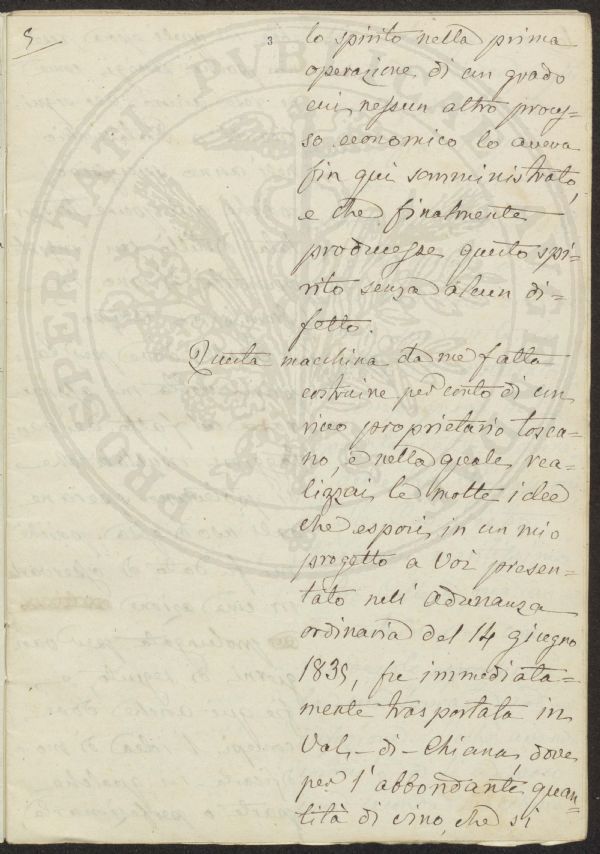 5
3
lo spirito nella prima
operazione di un grado
cui nessun altro proces-
so economico lo aveva
fin qui somministrato,
e che finalmente
producesse questo spi-
rito senza alcun di-
fetto.
Questa macchina da me fatta
costruire per conto di un
ricco proprietario tosca-
no, e nella quale rea-
lizzai le molte idee
che esposi in un mio
progetto a Voi presen-
tato nell' adunanza
ordinaria del 14 giugno
1835, fu immediata-
mente trasportata in
Val-di-Chiana, dove
per l'abbondante quan-
tità di vino, che si
PROSPERITATI PUBLICAE